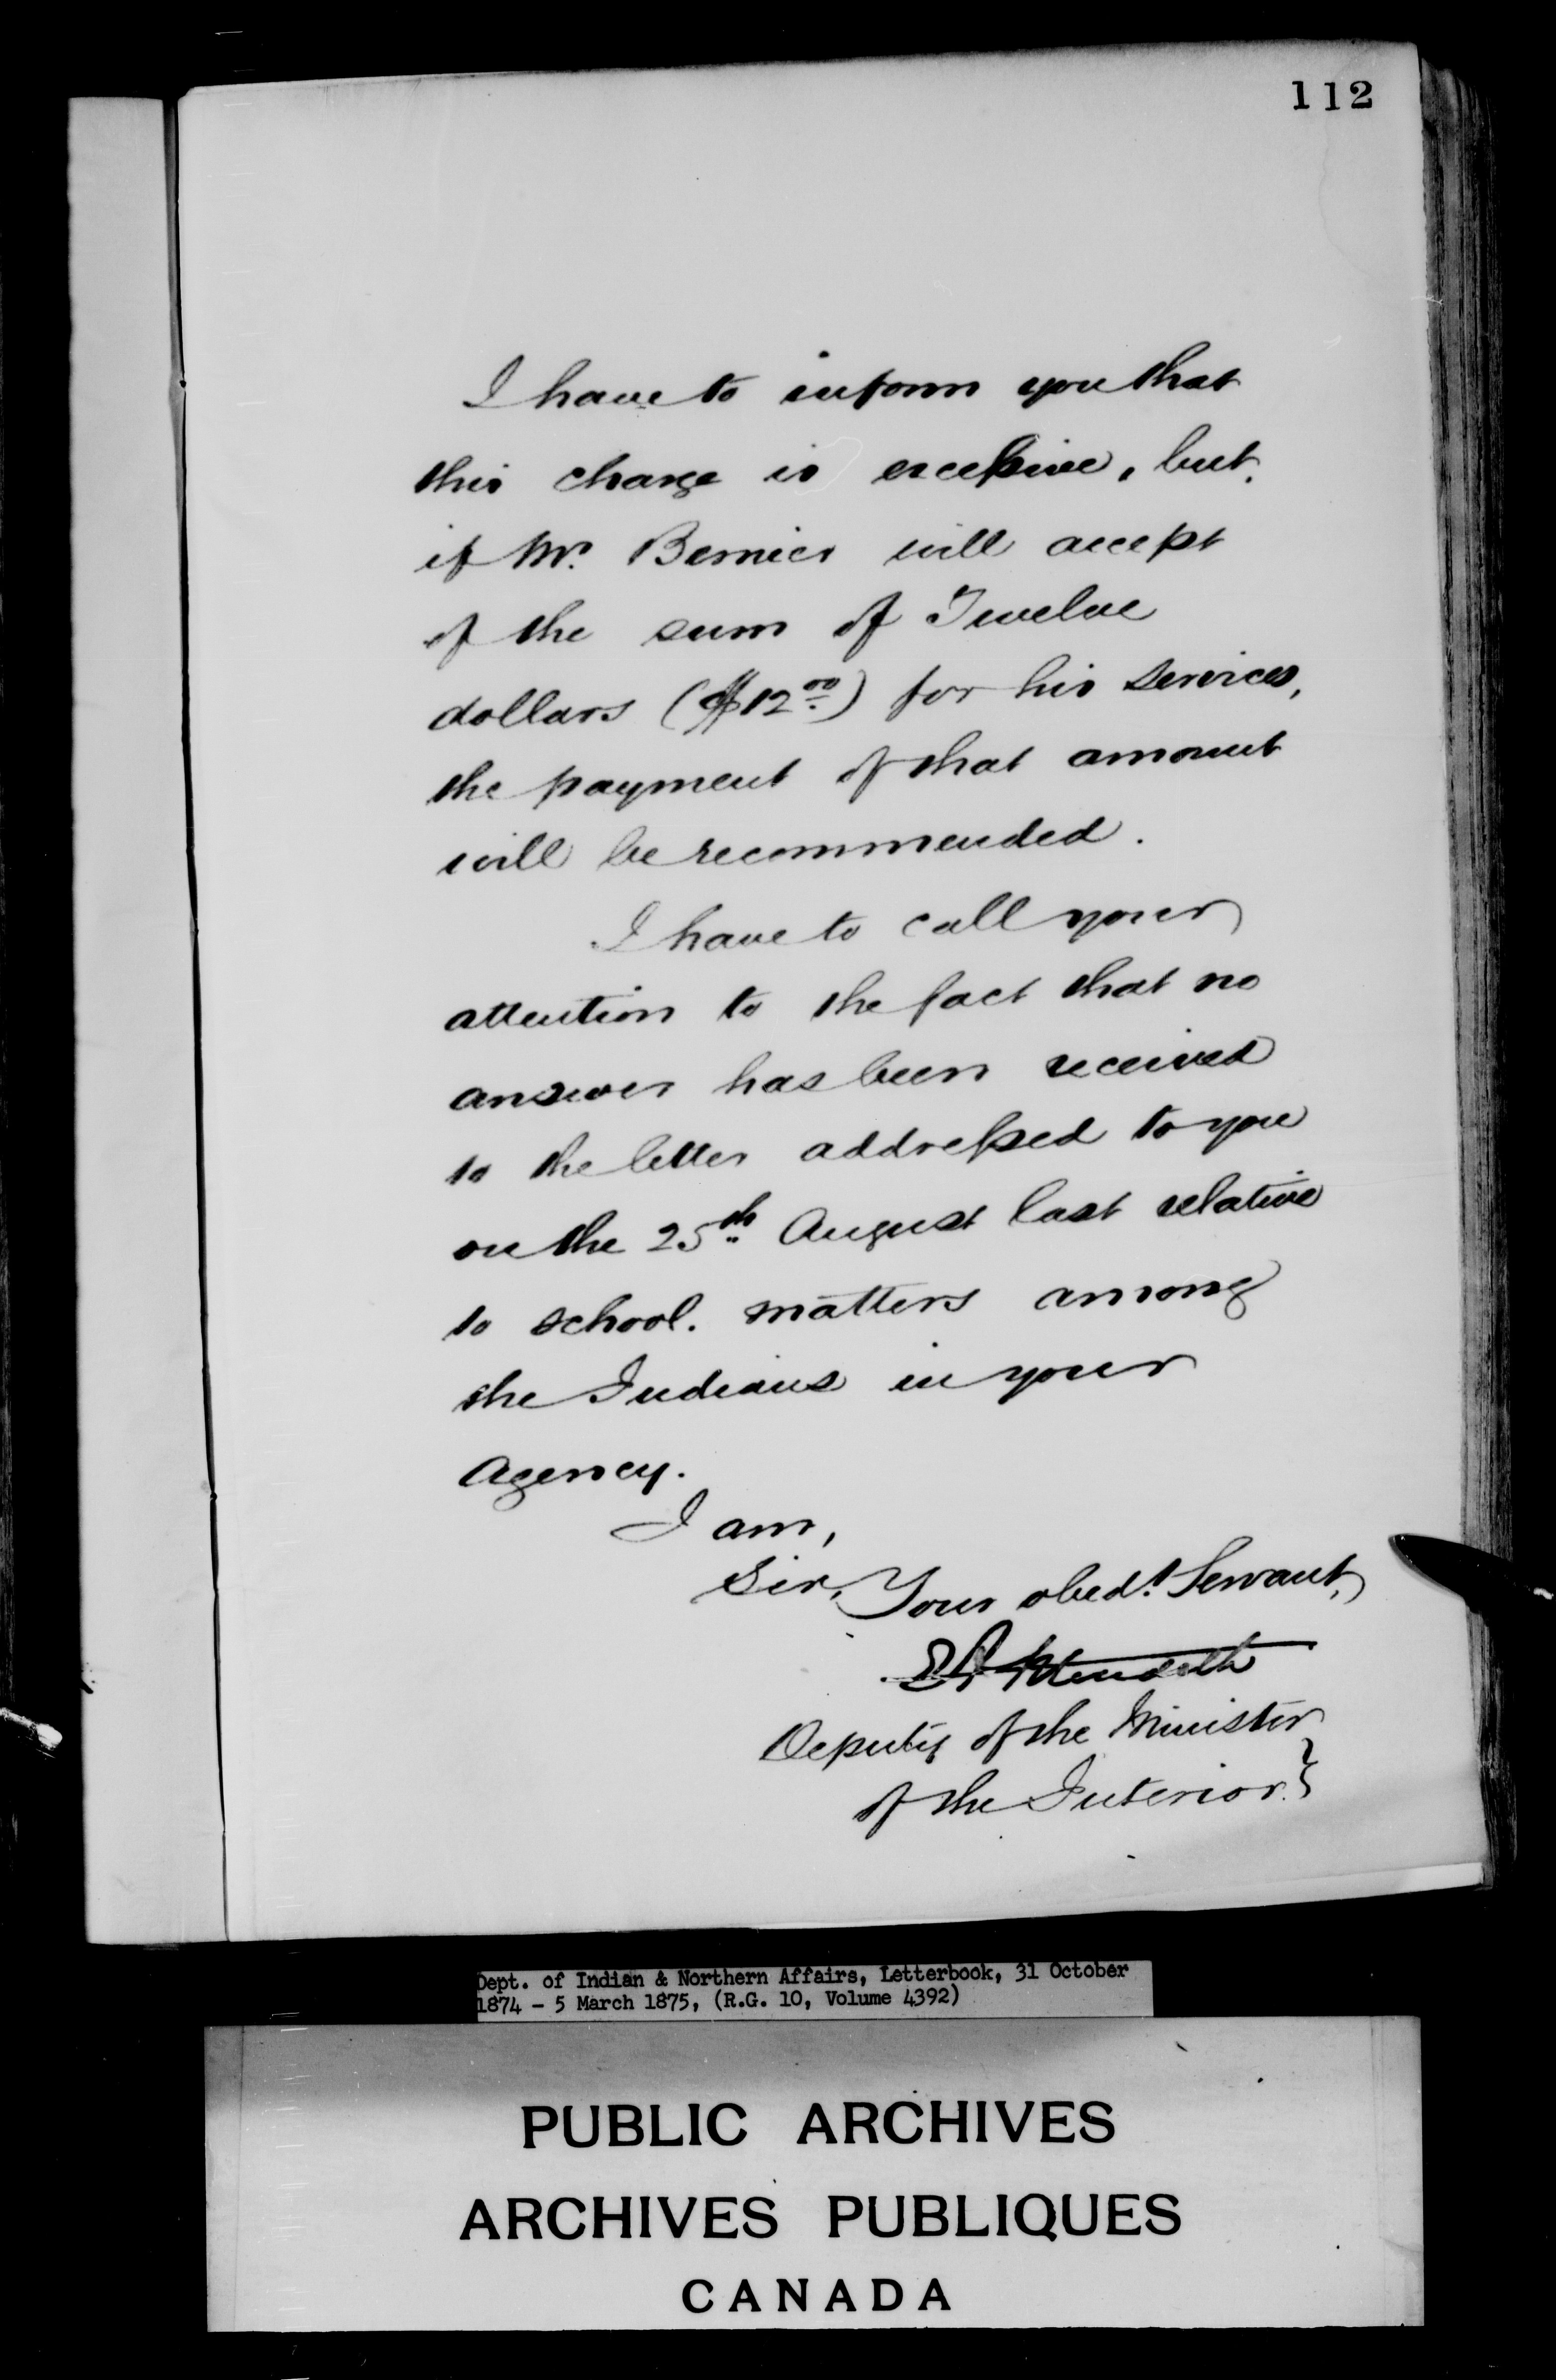 112
I have to inform you that
this charge is excessive, but,
if Mr. Bernier will accept
of the sum of Twelve
dollars ($12.00) for his services,
the payment of that amount
will be recommended.
I have to call your
attention to the fact that no
answer has been received
to the letter addressed to you
on the 25th August last relative
to school. matters among
the Indians in your
Agency.
I am,
Sir, Your obedt. Servant,
E A Meredith
Deputy of the Minister
of the Interior. }
Dept. of Indian & Northern Affairs, Letterbook, 31 October
1874 - 5 March 1875, (R.G. 10, Volume 4392)
PUBLIC ARCHIVES
ARCHIVES PUBLIQUES
CANADA